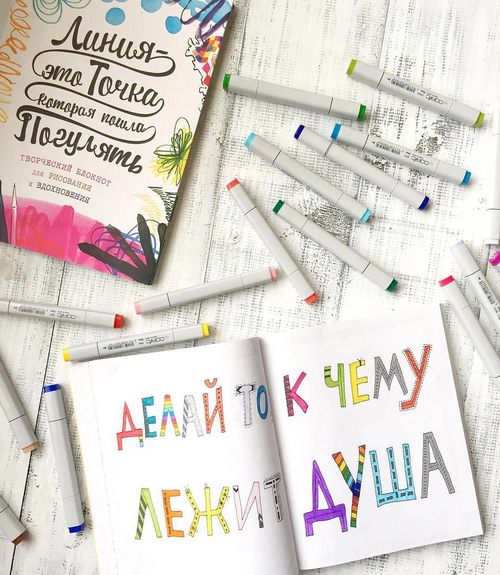 Линия-
это Точка
которая пошла
Погулять
ТВОРЧЕСКИЙ БЛОКНОТ
ДЛЯ РИСОВАНИЯ
И ВДОХНОВЕНИЯ
ДЕЛАЙ ТО, К ЧЕМУ
ЛЕЖИТ ДУША